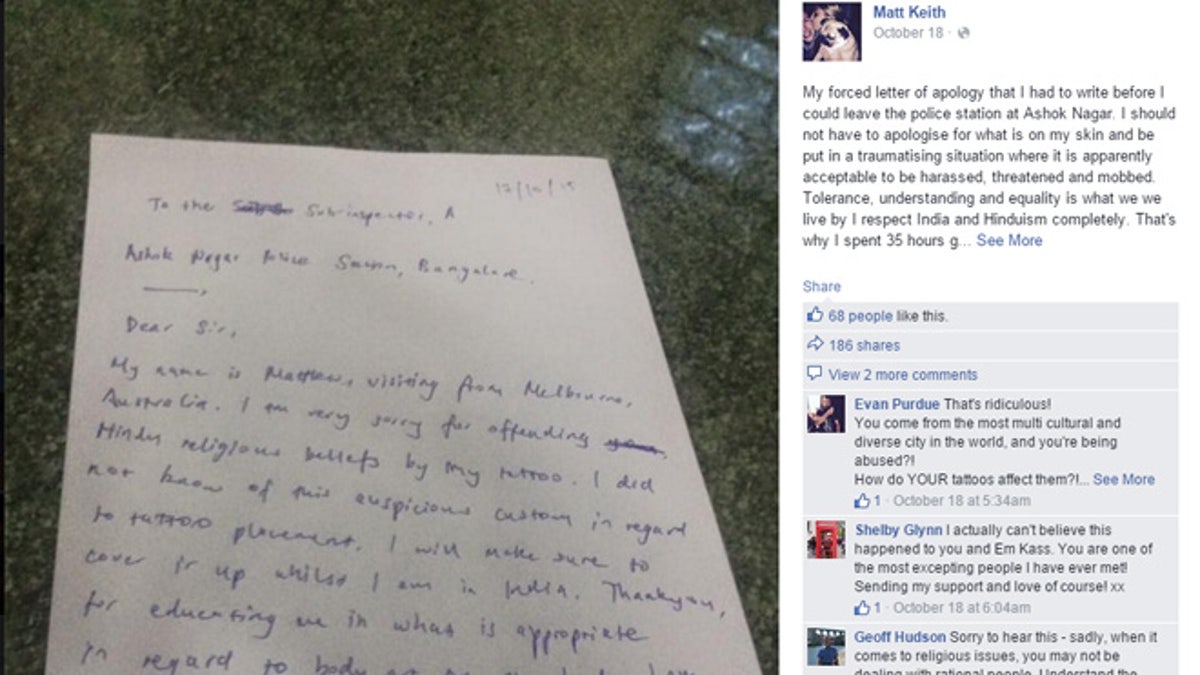 17/10/15
To the Subinspector, A
Ashok Nagar Police Station, Bangalore.
Dear Sir,
My name is Matthew, visiting from Melbourne,
Australia. I am very sorry for offending
Hindu religious beliefs by my tattoo. I did
not know of this auspicious custom in regard
to tattoo placement. I will make sure to
cover it up whilst I am in India. Thankyou,
for educating me in what is appropriate
in regard to body
Matt Keith
October 18
My forced letter of apology that I had to write before I
could leave the police station at Ashok Nagar. I should
not have to apologise for what is on my skin and be
put in a traumatising situation where it is apparently
acceptable to be harassed, threatened and mobbed.
Tolerance, understanding and equality is what we we
live by I respect India and Hinduism completely. That's
why I spent 35 hours g... See More
Share
68 people like this.
186 shares
View 2 more comments
Evan Purdue That's ridiculous!
You come from the most multi cultural and
diverse city in the world, and you're being
abused?!
How do YOUR tattoos affect them?!... See More
1 · October 18 at 5:34am
Shelby Glynn I actually can't believe this
happened to you and Em Kass. You are one of
the most excepting people I have ever met!
Sending my support and love of course! xx
1 · October 18 at 6:04am
Geoff Hudson Sorry to hear this - sadly, when it
comes to religious issues, you may not be
dealing with rational people. Understand the